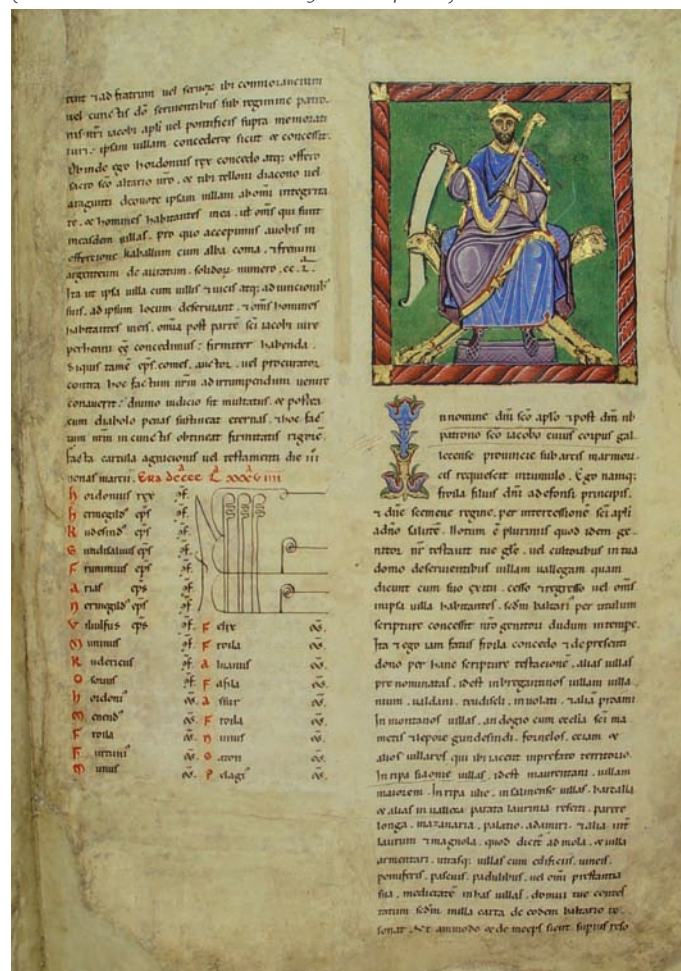 uel cunctis do seruientibus sub regimine patro
nis nri iacobi apli uel pontificis supra memorati
ipsam uillam concedere sicut & concessit.
ego hordonius rex concedo atq; offero
sacro sco altario uro. & tibi telloni diacono uel
aragunti deuote ipsam uillam ab omi integrita
te. & homines habitantes inea. ut oms qui sunt
ineasdem uillas. pro quo accepimus auobis in
kaballum cum alba coma. & frenum
argenteum de auratum. solidos numero. cc. L.
Ita ut ipsa uilla cum uillis & uicis atq; adiuncionib;
suis. ad ipsum locum deseruiant. & oms homines
habitantes ineis. omia post parte sci iacobi iure
perhenni concedimus; firmiter habenda.
Siquis tame eps. comes. auctor. uel procurator
contra hoc factum nrm adirrumpendum uenire
conauerit; diuino iudicio sit multatus. & postea
cum diabolo penas sustineat eternas. & hoc fac
tum nrm in cunctis obtineat firmitatis rigore.
facta cartula agnicionis uel testamenti die iii
nonas marcii. Era dcccc L xxx u iiii
hordonius rex cf.
hermegild eps cf.
Rudesind eps cf.
Gundisaluus eps cf.
Frunimius eps cf.
Arias eps cf.
hermegild eps cf.
Viliulfus eps cf.
Muninus cf.
Rudericus cf.
Osorius cf.
hordoni
Menend
Froila
Furtuni
Munius
Felix
Froila
Aluanus
Afila
Assur
Froila
Nunus
Gaton
Pelagi
In nomine dni sco aplo & post dm nb
patrono sco iacobo cuius corpus gal
lecense prouincie sub arcis marmori
cis requiescit intumulo. Ego namq;
froila filius dni adefonsi principis.
& dne scemene regine. per intercessione sci apli
adno salute. Notum e plurimis quod idem ge
nitor nr testauit tue gle. uel cultoribus in tua
domo deseruientibus uillam uallegam quam
dicunt cum suo exitu. cesso & regresso uel oms
inipsa uilla habitantes. scdm baltari per titulum
scripture concessit nro genitori dudum intempe.
Ita & ego iam fatus froila concedo & depresenti
dono per hanc scripture testacione. alias uillas
pre nominatas. idest in bregantinos uillam uilla
nium. ualdani. teudiseli. inuolati. & alia proami
In montanos uillas. andogio cum ecclia sci ma
metis & lepore gundesindi. fornelos. eciam &
alios uillares qui ibi iacent inprefato territorio.
In ripa uillas. idest maurentani. uillam
maiorem. In ripa ulie. in salnense uillas. bartalla
& alias in uallega parata laurinia reseti. parere
longa. mazanaria. palatio. adamiri. & alia int
laurum & magnola. quod dicit ad mola. & uilla
armentari. utrasq; uillas cum edificiis. uineis.
pomiferis. pascuis. padulibus. uel omi prestantia
sua. medietate in has uillas. domui tue contes
tatum scdm inilla carta de eodem baltario re
sonat. & ammodo & deinceps sicut supius reso